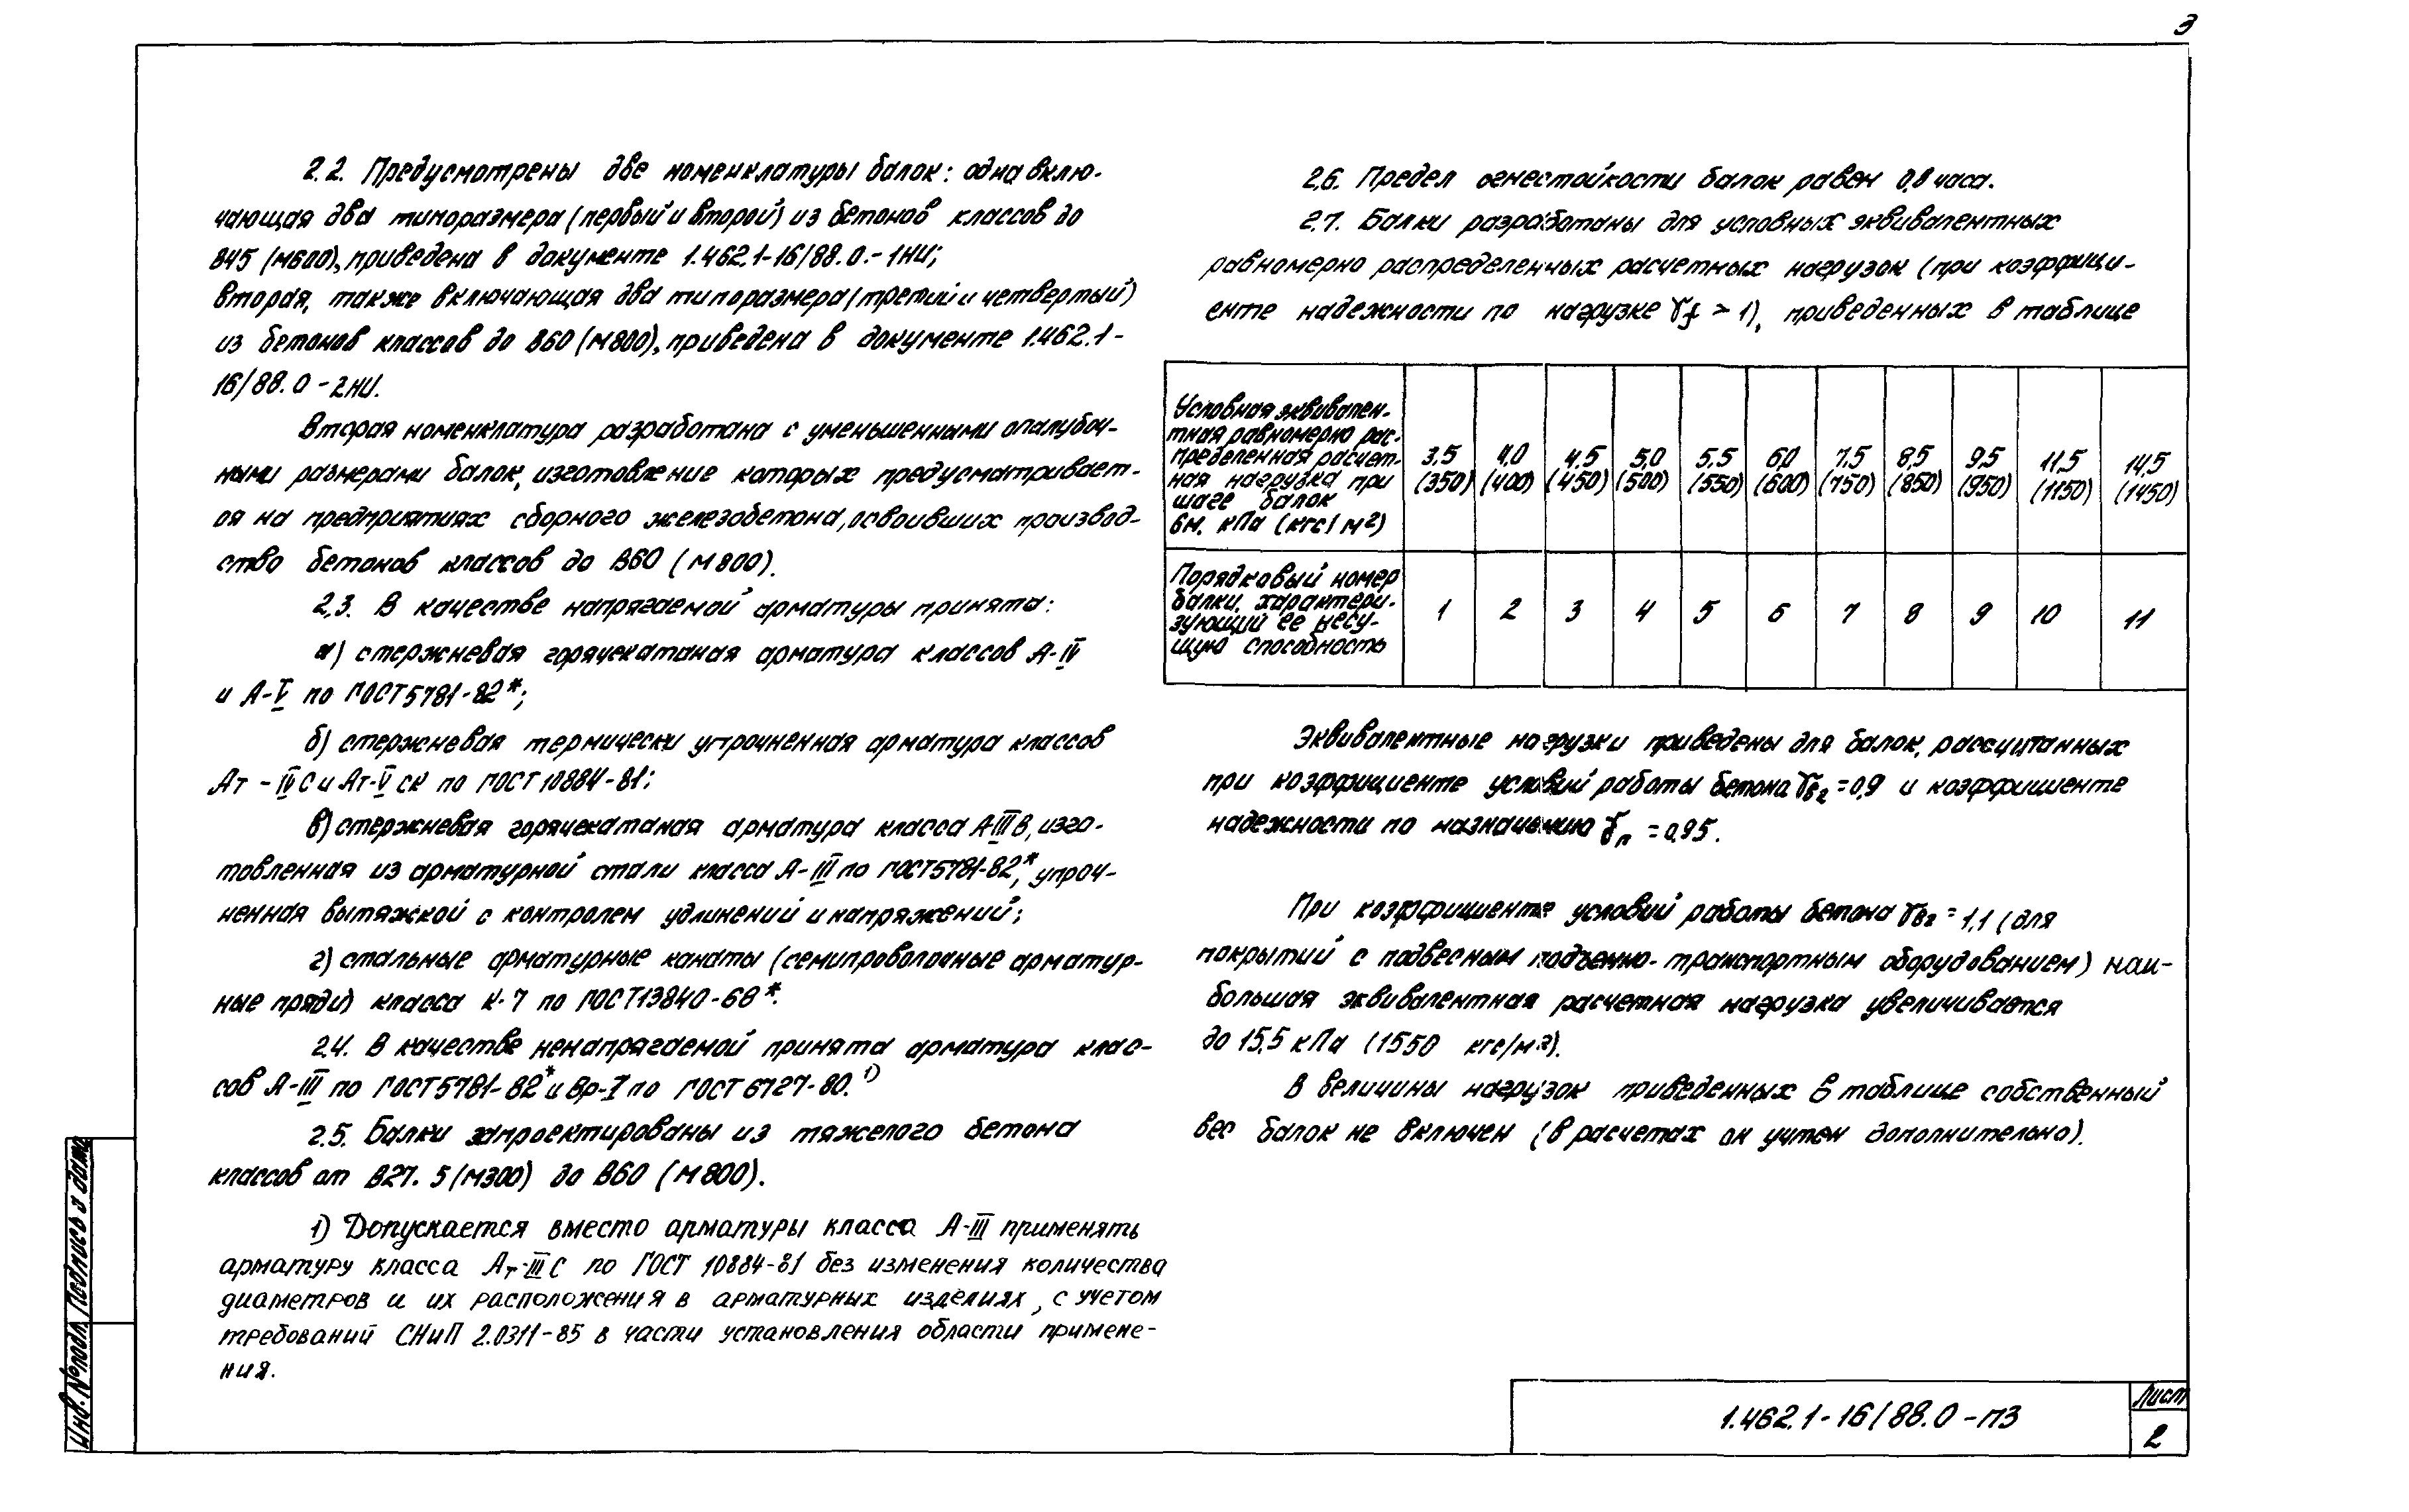 3
2.2. Предусмотрены две номенклатуры балок: одна вклю-
чающая два типоразмера (первый и второй) из бетонов классов до
В45 (М600), приведена в документе 1.462.1-16/88.0.-1НИ;
вторая, также включающая два типоразмера (третий и четвертый)
из бетонов классов до В60 (М800), приведена в документе 1.462.1-
16/88.0-2НИ.
Вторая номенклатура разработана с уменьшенными опалубоч-
ными размерами балок, изготовление которых предусматривает-
ся на предприятиях сборного железобетона, освоивших производ-
ство бетонов классов до В60 (М800).
2.3. В качестве напрягаемой арматуры принята:
а) стержневая горячекатаная арматура классов А-IV
и А-V по ГОСТ 5781-82*;
б) стержневая термически упрочненная арматура классов
Ат-IVС и Ат-VСК по ГОСТ 10884-81;
в) стержневая горячекатаная арматура класса А-IIIВ, изго-
товленная из арматурной стали класса А-III по ГОСТ 5781-82*, упроч-
ненная вытяжкой с контролем удлинений и напряжений;
г) стальные арматурные канаты (семипроволочные арматур-
ные пряди) класса К-7 по ГОСТ 13840-68*.
2.4. В качестве ненапрягаемой принята арматура клас-
сов А-III по ГОСТ 5781-82* и Вр-I по ГОСТ 6727-80.¹⁾
2.5. Балки запроектированы из тяжелого бетона
классов от В27.5 (М300) до В60 (М800).
1) Допускается вместо арматуры класса А-III применять
арматуру класса Ат-IIIС по ГОСТ 10884-81 без изменения количества
диаметров и их расположения в арматурных изделиях, с учетом
требований СНиП 2.0311-85 в части установления области примене-
ния.
2.6. Предел огнестойкости балок равен 0,8 часа.
2.7. Балки разработаны для условных эквивалентных
равномерно распределенных расчетных нагрузок (при коэффици-
енте надежности по нагрузке γf > 1), приведенных в таблице
Условная эквивален-
тная равномерно рас-
пределенная расчет-
ная нагрузка при
шаге балок
6м, кПа (кгс/м²)
3,5 4,0 4,5 5,0 5,5 6,0 7,5 8,5 9,5 11,5 14,5
(350) (400) (450) (500) (550) (600) (750) (850) (950) (1150) (1450)
Порядковый номер
балки, характери-
зующий ее несу-
щую способность
1 2 3 4 5 6 7 8 9 10 11
Эквивалентные нагрузки приведены для балок, рассчитанных
при коэффициенте условий работы бетона γв₂ = 0,9 и коэффициенте
надежности по назначению γп = 0,95.
При коэффициенте условий работы бетона γв₂ = 1,1 (для
покрытий с подвесным подъемно-транспортным оборудованием) наи-
большая эквивалентная расчетная нагрузка увеличивается
до 15,5 кПа (1550 кгс/м²).
В величины нагрузок приведенных в таблице собственный
вес балок не включен (в расчетах он учтен дополнительно).
Инв. № подл. Подпись и дата
1.462.1-16/88.0-ПЗ
Лист
2